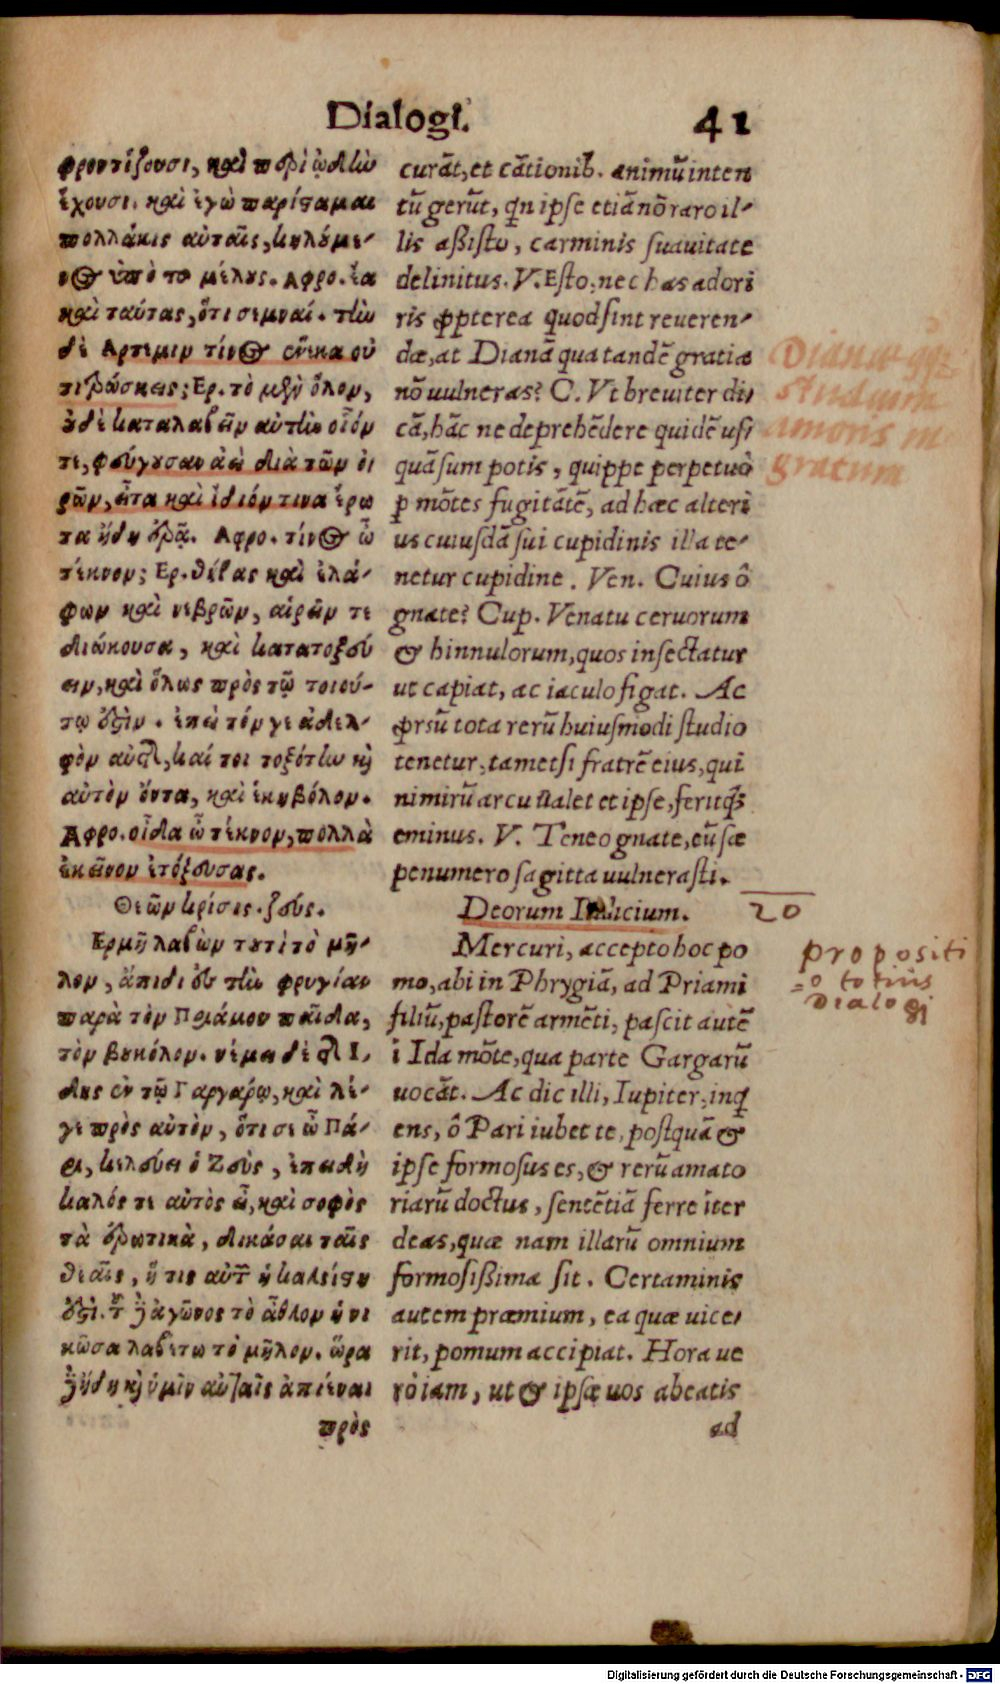 Dialogi. 41
φροντίζουσι, καὶ περὶ ᾠδὴν
ἔχουσι. καὶ ἐγὼ παρίσταμαι
πολλάκις αὐταῖς, κηλούμε-
νος ὑπὸ το μέλους. Αφρο. ἔα
καὶ ταύτας, ὅτι σεμναί. τὴν
δὲ Αρτεμιν τίνος ἕνεκα οὐ
τιτρώσκεις; Ερ. τὸ μὲν ὅλον,
οὐδὲ καταλαβεῖν αὐτὴν οἷόν
τε, φεύγουσαν ἀεὶ διὰ τῶν ὀ
ρῶν, εἶτα καὶ ἰδιόν τινα ἔρω
τα ἤδη ἐρᾷ. Αφρο. τίνος ὦ
τέκνον; Ερ. θήρας καὶ ἐλά-
φων καὶ νεβρῶν, αἱρεῖν τε
διώκουσα, καὶ κατατοξεύ
ειν, καὶ ὅλως πρὸς τῷ τοιού-
τῳ ἐστὶν. ἐπεὶ τόν γε ἀδελ-
φὸν αὐτῆς, καί τοι τοξότην καὶ
αὐτὸν ὄντα, καὶ ἑκηβόλον.
Αφρο. οἶδα ὦ τέκνον, πολλὰ
ἐκεῖνον ἐτόξευσας.
Θεῶν κρίσις. ζεύς.
Ερμῆ λαβὼν τουτὶ τὸ μῆ-
λον, ἄπιθι ἐς τὴν φρυγίαν
παρὰ τὸν Πριάμου παῖδα,
τὸν βουκόλον. νέμει δὲ τῆς Ι-
δης ἐν τῷ Γαργάρῳ, καὶ λέ-
γε πρὸς αὐτὸν, ὅτι σε ὦ Πά-
ρι, κελεύει ὁ Ζεὺς, ἐπειδὴ
καλός τε αὐτὸς εἶ, καὶ σοφὸς
τὰ ἐρωτικὰ, δικάσαι ταῖς
θεαῖς, ἥ τις αὐτῶν ἡ καλλίστη
ἐστί. τοῦ δὲ ἀγῶνος τὸ ἆθλον ἡ νι
κῶσα λαβέτω τὸ μῆλον. ὥρα
δὲ ἤδη καὶ ὑμῖν αὐταῖς ἀπιέναι
πρὸς
curãt, et cãtionib. animũ inten
tũ gerũt, qn ipse etiã nõ raro il-
lis aßisto, carminis suauitate
delinitus. V. Esto: nec has adori
ris ꝓpterea quod sint reueren-
dæ, at Dianã qua tandẽ gratia
nõ uulneras? C. Vt breuiter di-
cã, hãc ne deprehẽdere quidẽ usi
quã sum potis, quippe perpetuò
p mõtes fugitãtẽ, ad hæc alteri
us cuiusdã sui cupidinis illa te-
netur cupidine. Ven. Cuius ô
gnate? Cup. Venatu ceruorum
& hinnulorum, quos insectatur
ut capiat, ac iaculo figat. Ac
ꝓrsũ tota rerũ huiusmodi studio
tenetur: tametsi fratrẽ eius, qui
nimirũ arcu ualet et ipse, feritq́;
eminus. V. Teneo gnate, eũ sæ
penumero sagitta uulnerasti.
Deorum Iudicium.
Mercuri, accepto hoc po
mo, abi in Phrygiã, ad Priami
filiũ, pastorẽ armẽti, pascit autẽ
ĩ Ida mõte, qua parte Gargarũ
uocãt. Ac dic illi, Iupiter, inq
ens, ô Pari iubet te, postquã &
ipse formosus es, & rerũ amato
riarũ doctus, sentẽtiã ferre ĩter
deas, quæ nam illarũ omnium
formosißima sit. Certaminis
autem præmium, ea quæ uice-
rit, pomum accipiat. Hora ue
rò iam, ut & ipsæ uos abeatis
ad
studium
amoris in
gratum
20
propositi
=o totius
Dialogi
Digitalisierung gefördert durch die Deutsche Forschungsgemeinschaft - DFG